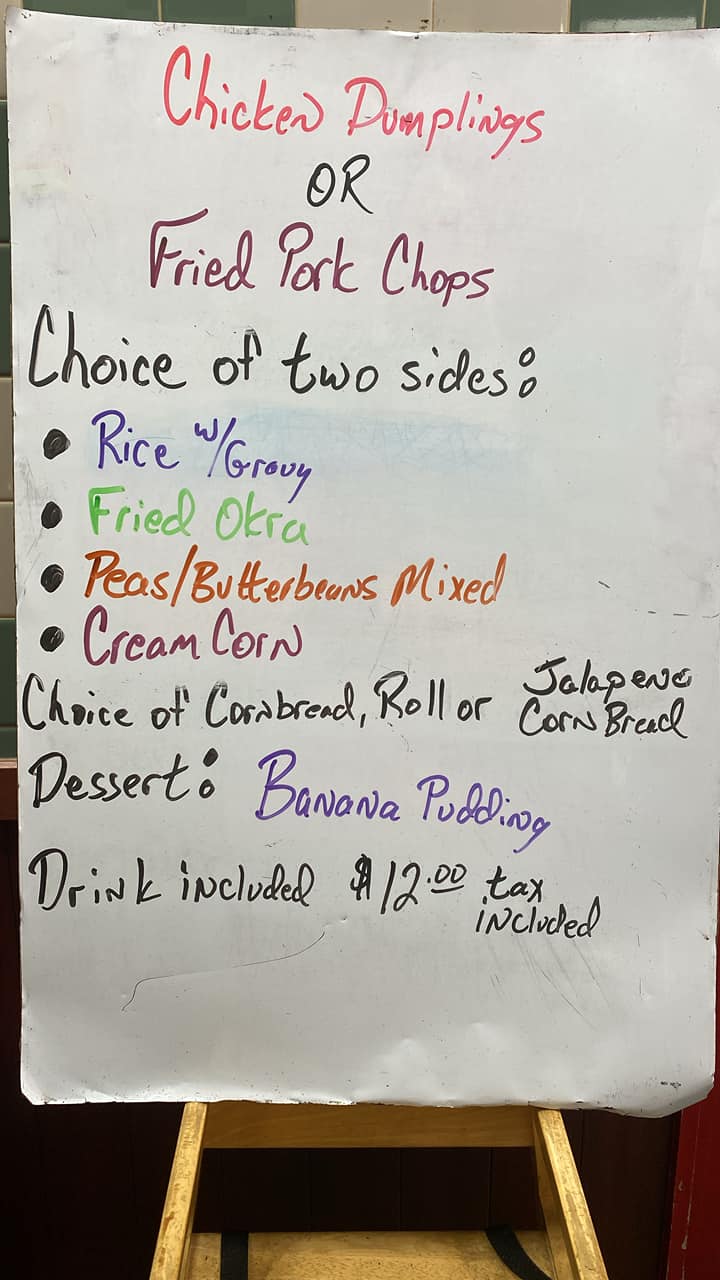 Chicken Dumplings
OR
Fried Pork Chops
Choice of two sides:
• Rice w/Gravy
• Fried Okra
• Peas/Butterbeans Mixed
• Cream Corn
Choice of Cornbread, Roll or Jalapeno Corn Bread
Dessert: Banana Pudding
Drink included $12.00 tax included